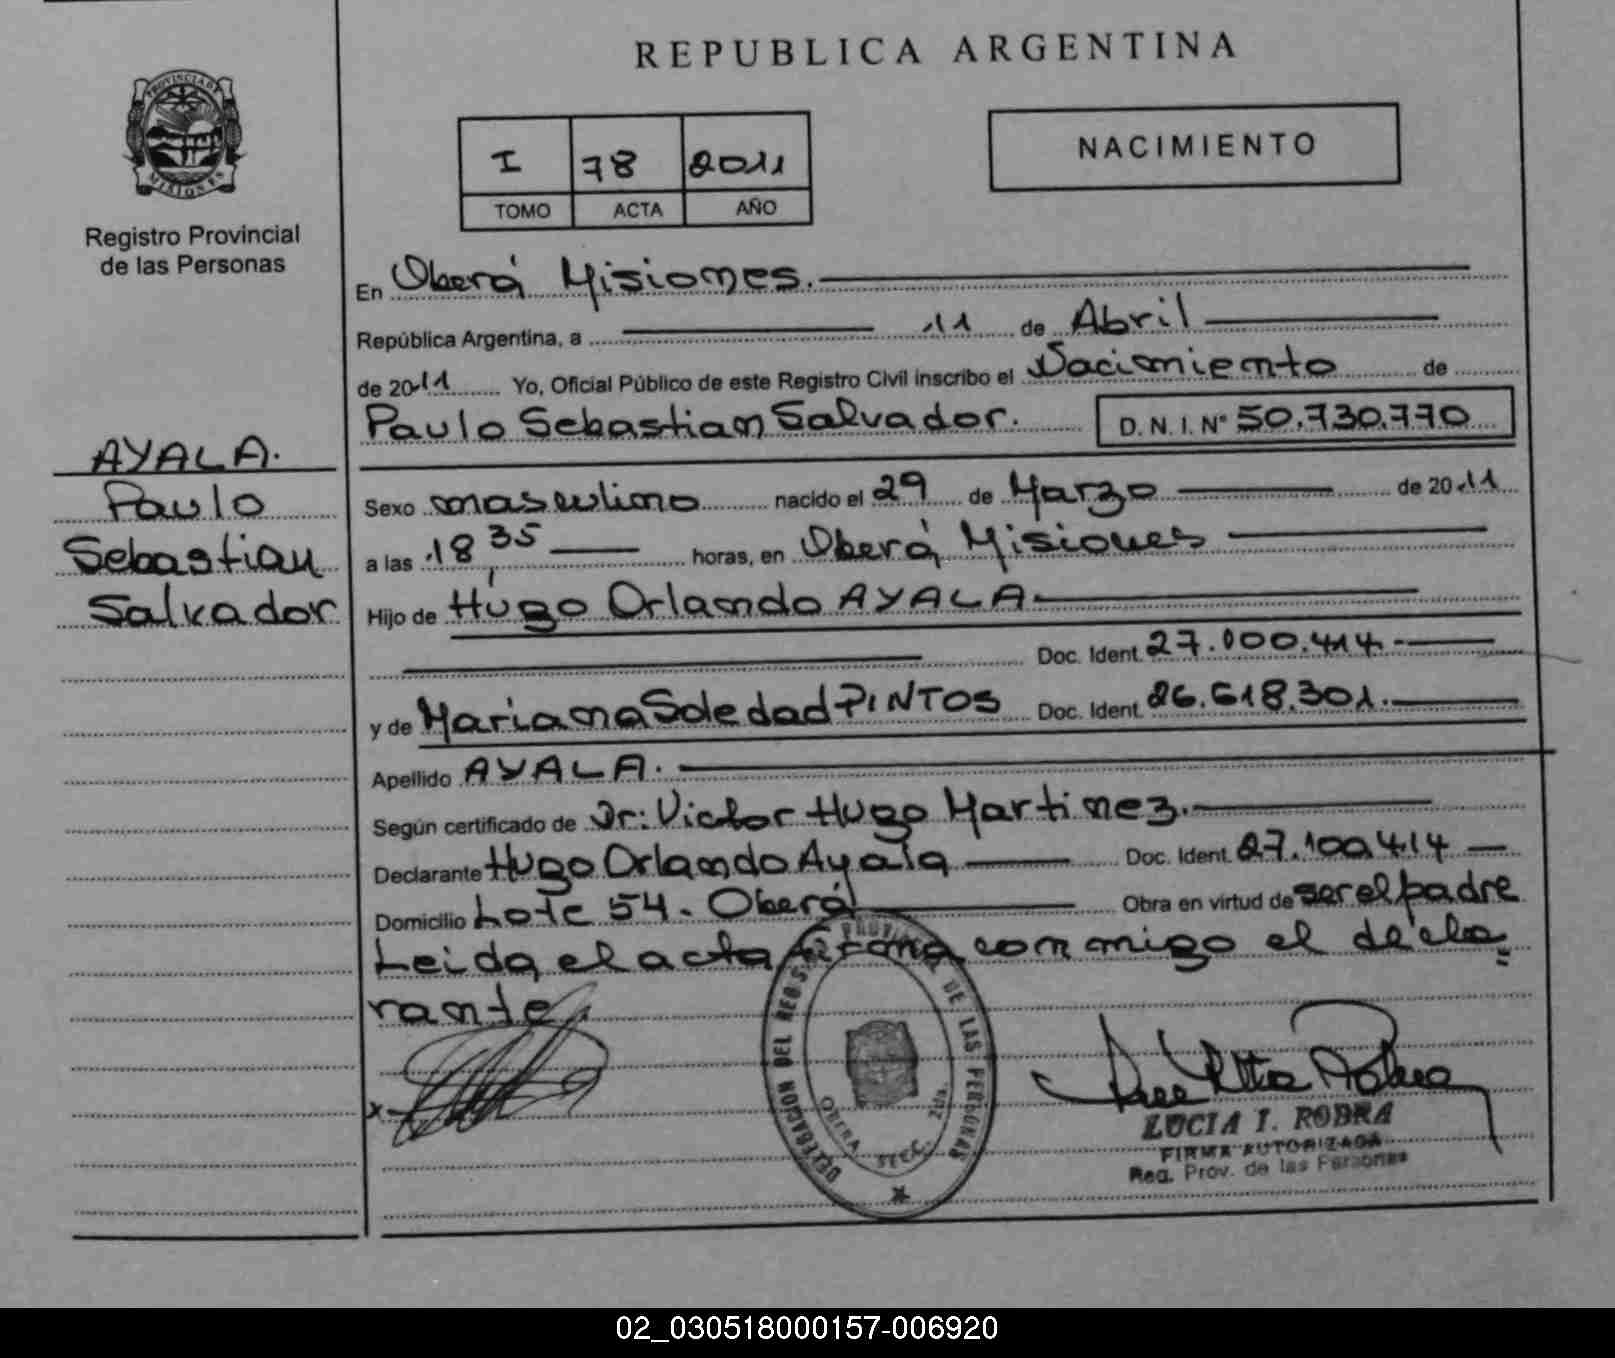 REPUBLICA ARGENTINA
PROVINCIA DE
MISIONES
Registro Provincial
de las Personas
I 78 2011
TOMO ACTA AÑO
NACIMIENTO
En Oberá Misiones.
República Argentina, a 11 de Abril
de 2011 Yo, Oficial Público de este Registro Civil inscribo el Nacimiento de
Paulo Sebastian Salvador. D. N. I. N° 50.730.770
AYALA.
Paulo
Sebastian
Salvador
Sexo masculino nacido el 29 de Marzo de 2011
a las 18,35 horas, en Oberá, Misiones
Hijo de Húgo Orlando AYALA
Doc. Ident. 27.100.414.
y de Mariana Soledad PINTOS Doc. Ident. 26.618.301.
Apellido AYALA.
Según certificado de Dr: Victor Hugo Martinez.
Declarante Hugo Orlando Ayala Doc. Ident. 27.100.414
Domicilio Lote 54. Oberá Obra en virtud de ser el padre
Leida el acta firma conmigo el decla=
rante.
DELEGACION DEL REG. PROVINCIAL DE LAS PERSONAS
OBERA SECC. 2da.
LUCIA I. ROBRA
FIRMA AUTORIZADA
Reg. Prov. de las Personas
02_030518000157-006920